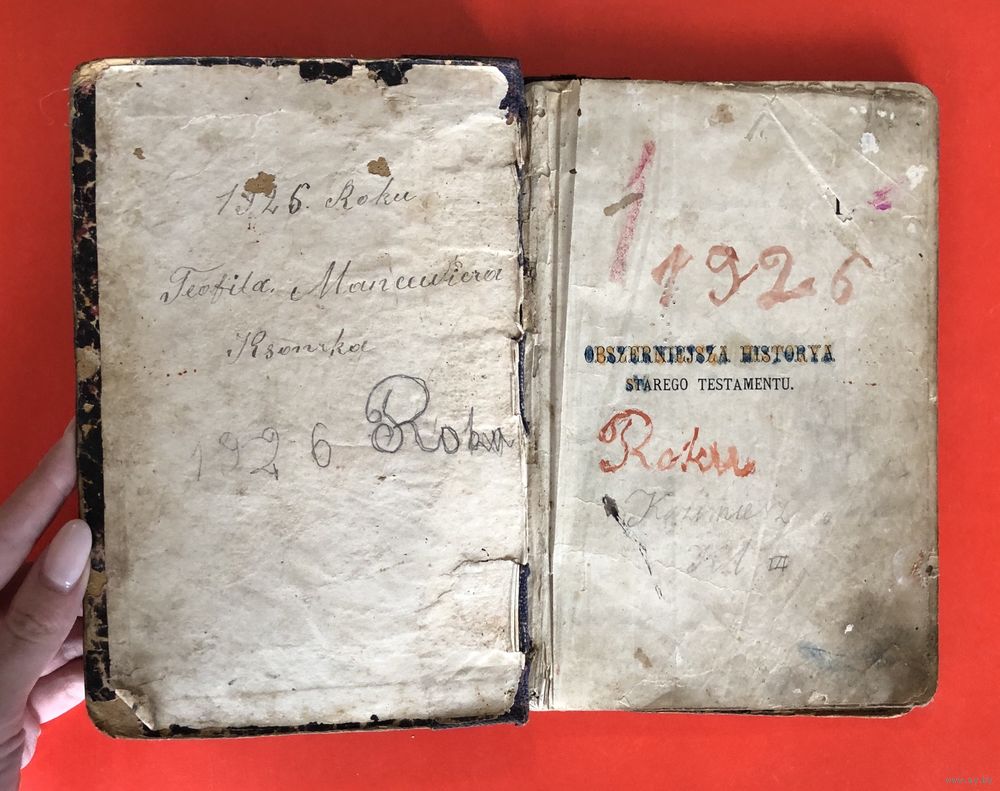 1926. Roku
Teofila. Mancewicza
Ksonzka
1926 Roku
1
1926
OBSZERNIEJSZA HISTORYA
STAREGO TESTAMENTU.
Roku
Kazimierz